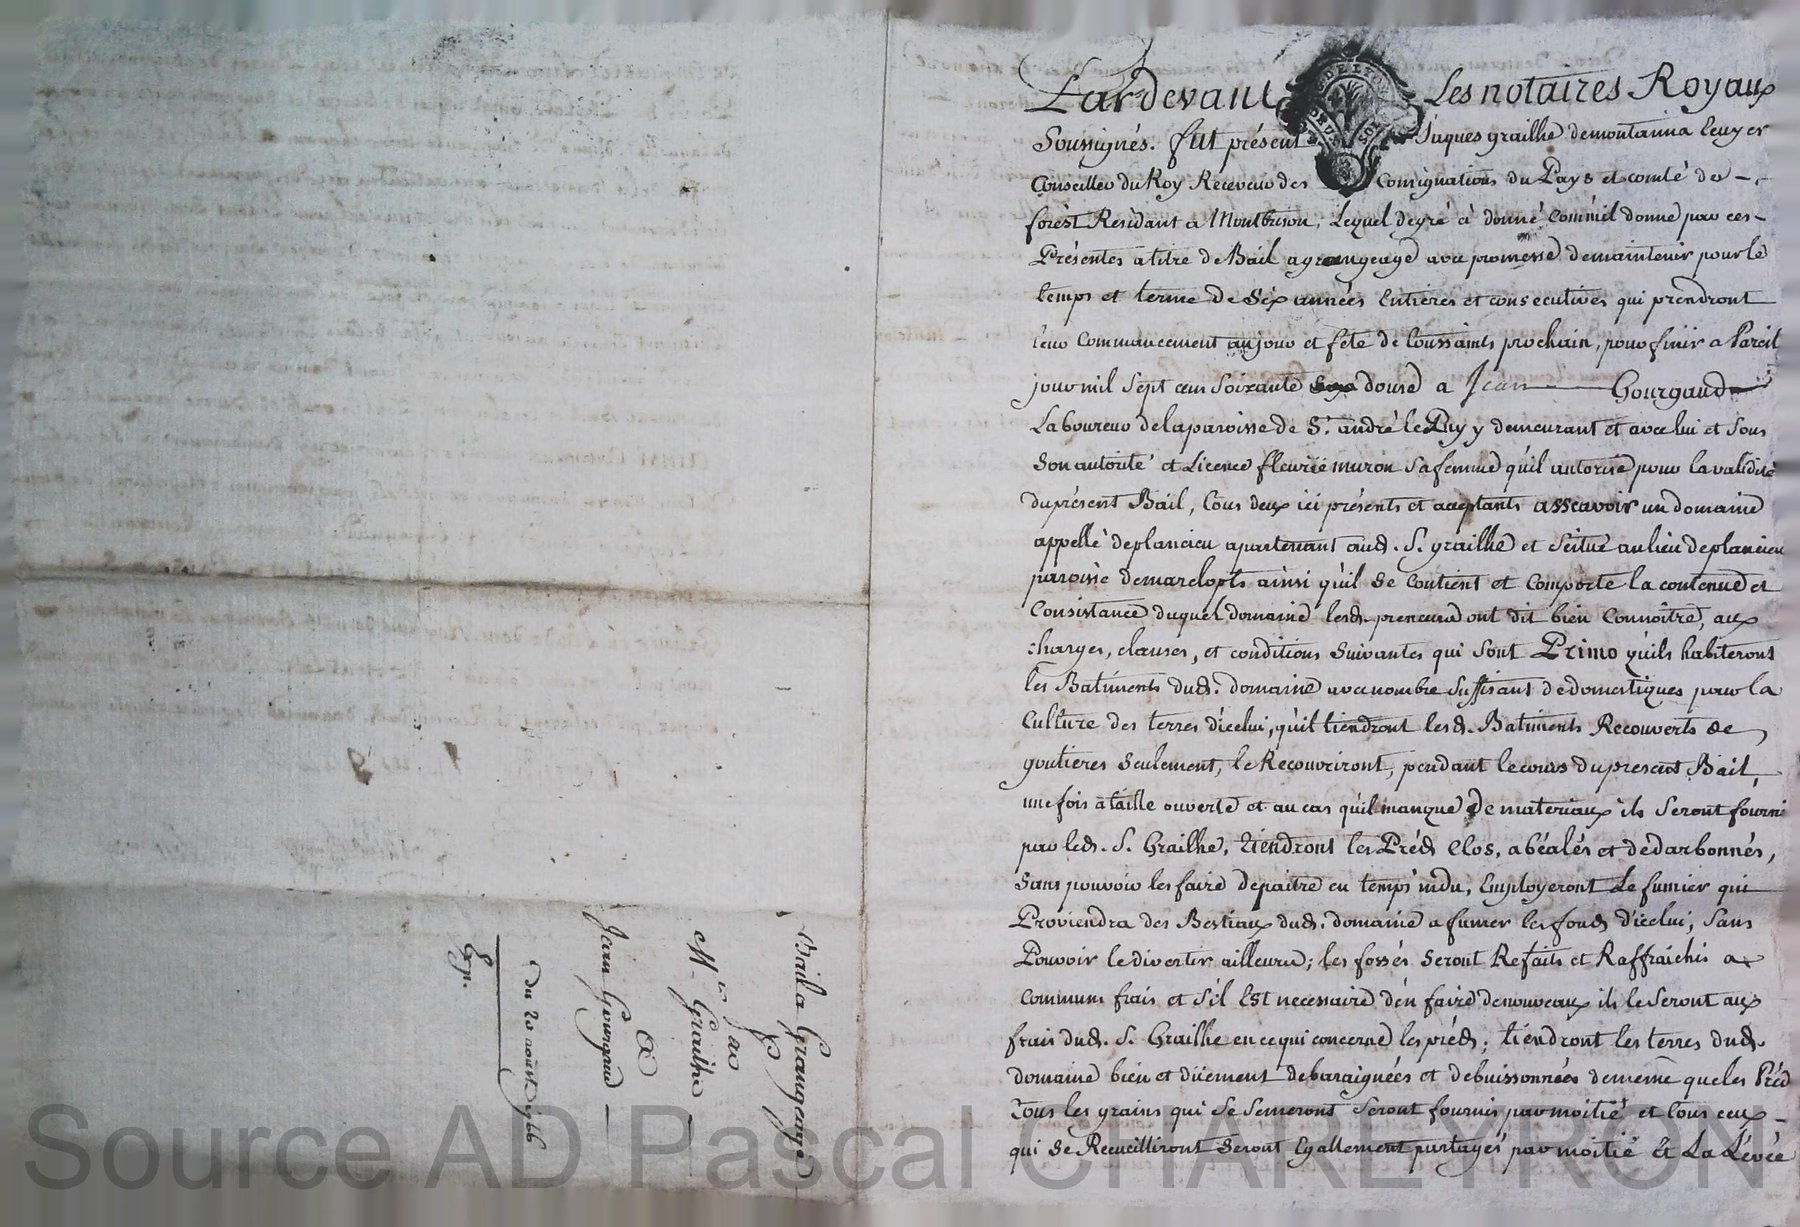 Pardevant Les notaires Royaux
Soussignés. fut présent Jaques grailhe demontaima Ecuyer
Conseiller du Roy Receveur des Consignations du Pays et comté de
forêst Residant a Montbrison, Lequel degré à donné comm'il donne par ces
Présentes a titre de Bail agrangeage avec promesse demaintenir pour le
temps et terme de Six années Entieres et consecutives qui prendront
leur Commancement aujour et fete de toussaints prochain, pour finir a Pareil
jour mil sept cens soixante douse a Jean Gourgaud
Laboureur delaparoisse de St. andré le Puy y demeurant et avec lui et sous
Son autorité et Licence fleurie muron sa femme qu'il autorise pour la validité
duprésent Bail, tous deux ici présents et acceptants asscavoir un domaine
appellé deplancieu apartenant aud. S. grailhe et scitué au lieu deplancieu
paroisse demarclopts ainsi qu'il se contient et comporte la contenue et
Consistance duquel domaine lesd. preneurs ont dit bien Connoitre, aux
charges, clauses, et conditions suivantes qui sont Primo qu'ils habiteront
les Batiments dud. domaine avec nombre suffisant de domestiques pour la
Culture des terres d'icelui, qu'il tiendront lesd. Batiments Recouverts de
goutieres seulement, le Recouvriront, pendant le cours du present Bail,
une fois a taille ouverte et au cas qu'il manque de materiaux ils seront fourni
par led. S. Grailhe, tiendront les Préds clos, abéalés et dédarbonnés,
Sans pouvoir les faire depaitre en temps indu, Employeront le fumier qui
Proviendra des Bestiaux dud. domaine a fumer les fonds d'icelui, sans
Pouvoir le divertir ailleurs; les fossés seront Refaits et Raffraichis a
communs frais et s'il Est necessaire d'en faire denouveaux ils le seront aux
frais dud. S. Grailhe en ce qui concerne les préds; tiendront les terres dud.
domaine bien et dûement debaraignées et debuissonnées demême que les Préd
Tous les grains qui se semeront seront fournis par moitié et tous ceux
qui se Recueilliront seront Egallement partagés par moitié Et La Lévée
Bail a Grangeage
Par
Mr. Grailhe
a
Jean Gourgaud
du 20 aoust 1766
Exp.
Source AD Pascal CHARLEYRON